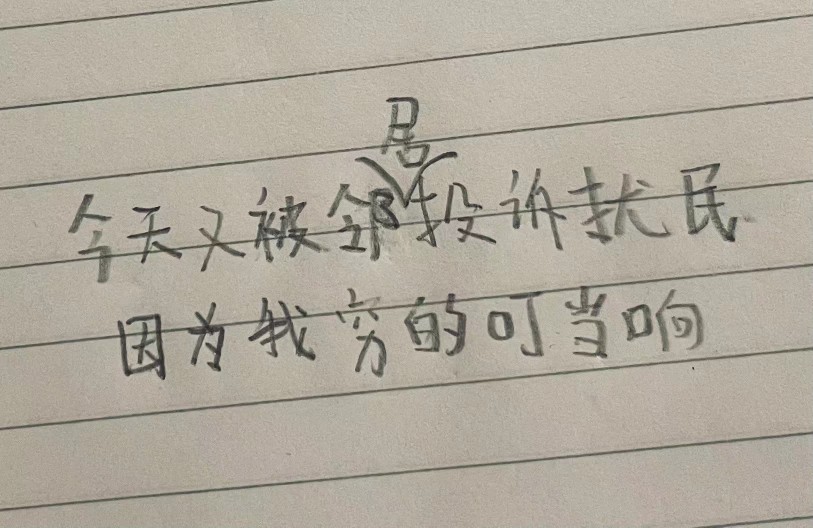 今天又被邻居投诉扰民
因为我穷的叮当响